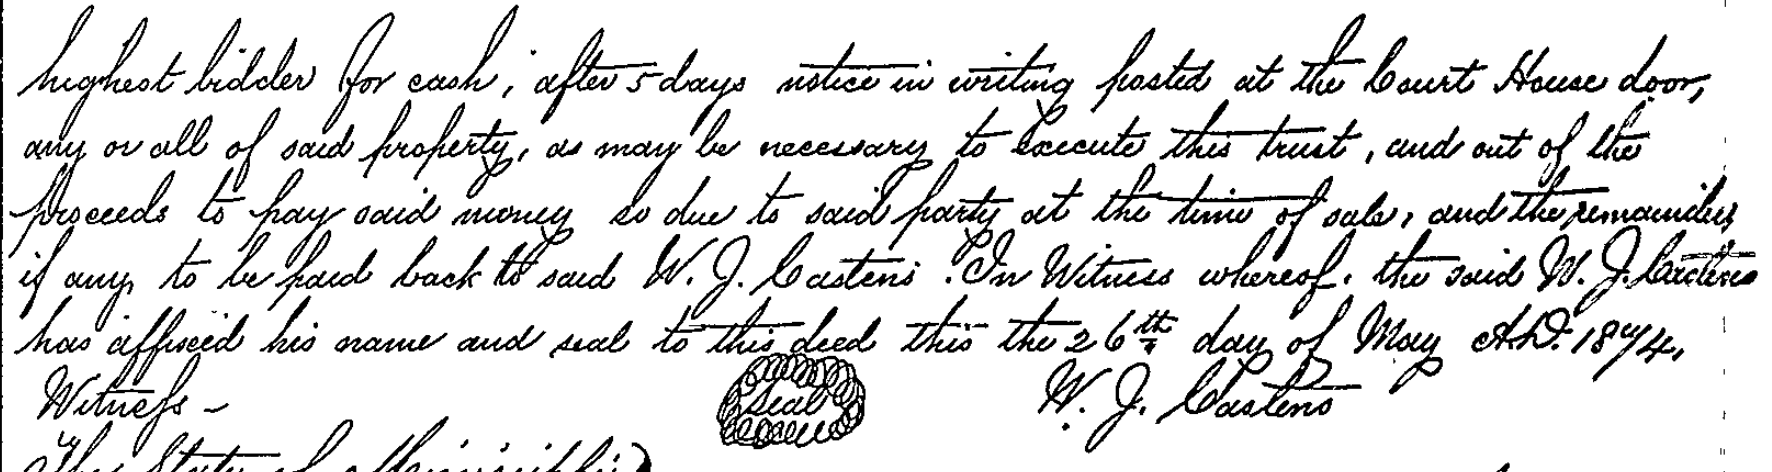 highest bidder for cash, after 5 days notice in writing posted at the Court House door,
any or all of said property, as may be necessary to execute this trust, and out of the
proceeds to pay said money so due to said party at the time of sale, and the remainder,
if any, to be paid back to said W. J. Castens. In Witness whereof. the said W. J. Castens
has affixed his name and seal to this deed this the 26th day of May A.D. 1874.
Witness - Seal W. J. Castens
The State of Mississippi)